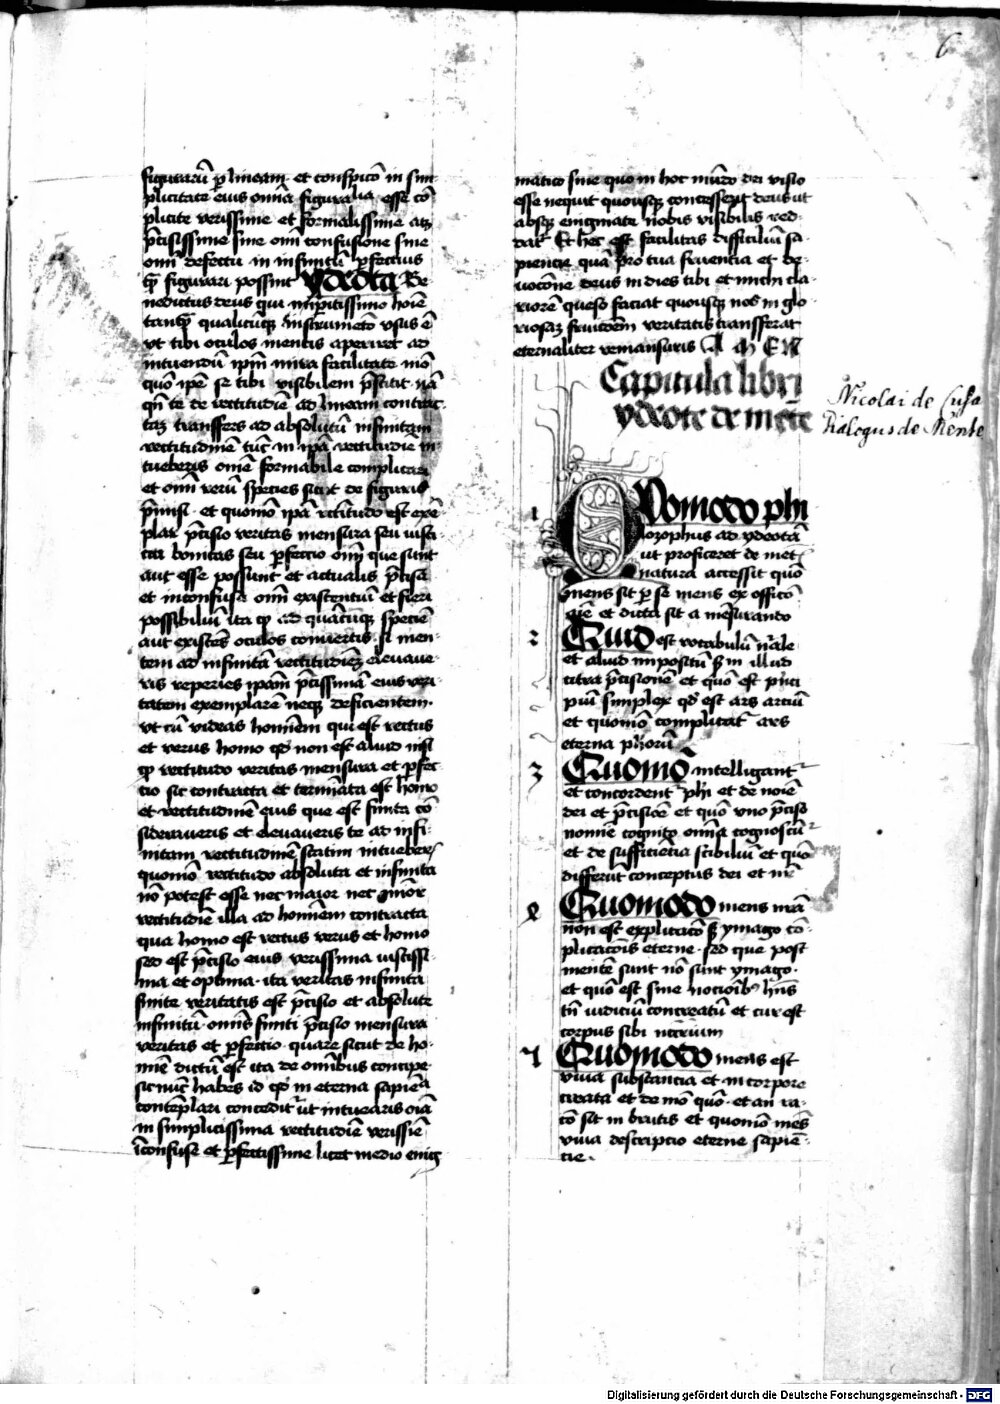 6
figurarū p lineam · et conspicio in sim-
plicitate eius omnia figuralia esse cō
plicite verissime et formalissime atqꝫ
p̄cisissime sine omī confusione sine
omī defectu in infinitū pfectius
qꝫ figurari possint Ydeota Be-
nedictus deus qui imperitissimo hoīe
tanqꝫ qualicūqꝫ instrumēto vsus ē
vt tibi oculos mentis aperiret ad
intuendū ipm̄ mira facilitate mō
quō ipē se tibi visibilem p̄stitit · nā
qn̄ te de rectitudīe ad lineam contrac
taꝫ transfers ad absolutū infinitam
rectitudinē tūc in ipā rectitudīe in-
tueberis omē formabile complicari
et omī rerū species sicut de figuris
p̄misi · et quomō ipā rc̄titudo est exē
plar p̄cisio veritas mensura seu iusti
cia bonitas seu pfectio omī que sunt
aut esse possunt et actualis p̄cisa
et inconfusa omī existentiū et fieri
possibiliū ita qꝫ ad quācūqꝫ speciē
aut existēs oculos conuertis · si men-
tem ad infinitā rectitudinēꝫ eleuaue-
ris reperies ipam p̄cissimā eius veri-
tatem exemplarē neqꝫ deficientem ·
vt cū videas hominem qui est rectus
et verus homo qd non est aliud nisi
qꝫ rectitudo veritas mensura et pfec-
tio sic contracta et termīata est homo
et rectitudinē eius que est finita cō
sideraueris et eleuaueris te ad infi-
nitam rectitudinē statim intueber͛
quomō rectitudo absoluta et infinita
nō potest esse nec maior nec mīor
rectitudīe illa ad hominem contracta
qua homo est rectus verus et homo
sed est p̄cisio eius verissima iustissi-
ma et optima · ita veritas infinita
finite veritatis est p̄cisio et absolute
infinitū · omīs finiti p̄cisio mensura
veritas et pfectio · quare sicut de ho-
mīe dictū est ita de omībus concipe ·
sic nūc habes id qd in eterna sapīea
contēplari concedit͛ ut intuearis oīa
in simplicissima rectitudīe verissiē
īconfuse et pfectissime licet medio enig
matico sine quo in hoc mūdo dei visio
esse nequit quousqꝫ concesserit deus ut
absqꝫ enigmate nobis visibilis red-
dat͛ Et hec est facilitas difficiliū sa-
piencie quā pro tua feruencia et de-
uocōne deus in dies tibi et michi cla-
riorē queso faciat quousqꝫ nos in glo-
riosaꝫ fruicōem veritatis transferat
eternaliter remansuris A M E N
Capitula libri
ydeote de mēte
Nicolai de Cusa
Dialogus de Mente
1 Quomodo phi
lozophus ad ydeotā
ut proficeret de ment͛
natura accessit quō
mens sit p se mens ex officō
aīe et dicta sit a mēsurando
2 Quid est vocabulū nr̄ale
et aliud impositū sꝫ in illud
citra p̄cisionē et quō est p̄nci
piū simplex qd est ars artiū
et quomō complicat͛ ars
eterna ph̄orū
3 Quomō intelligant͛
et concordent͛ ph̄i et de noīe
dei et p̄cisiōe et quō vno p̄ciso
nomīe cognito omīa cognoscūt͛
et de sufficiētia scibiliū et quō
differut conceptus dei et nr̄i
4 Quomodo mens nrā
non est explicacō sꝫ ymago cō-
plicacōis eterne · sed que post
mentē sunt nō sunt ymago ·
et quō est sine nocōib9 hn̄s
tn̄ iudiciū concreatū et cur est
corpus sibi nccriūm
5 Quomodo mens est
viua substancia et in corpore
creata et de mō quō · et an ra-
cō sit in brutis et quomō mēs
viua descriptio eterne sapiē-
cie ·
Digitalisierung gefördert durch die Deutsche Forschungsgemeinschaft - DFG